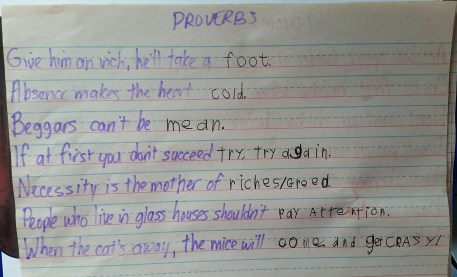 PROVERBS
Give him an inch, he'll take a foot.
Absence makes the heart cold.
Beggars can't be mean.
If at first you don't succeed try, try again.
Necessity is the mother of riches/Greed.
People who live in glass houses shouldn't pay Attention.
When the cat's away, the mice will come and get CRASY!